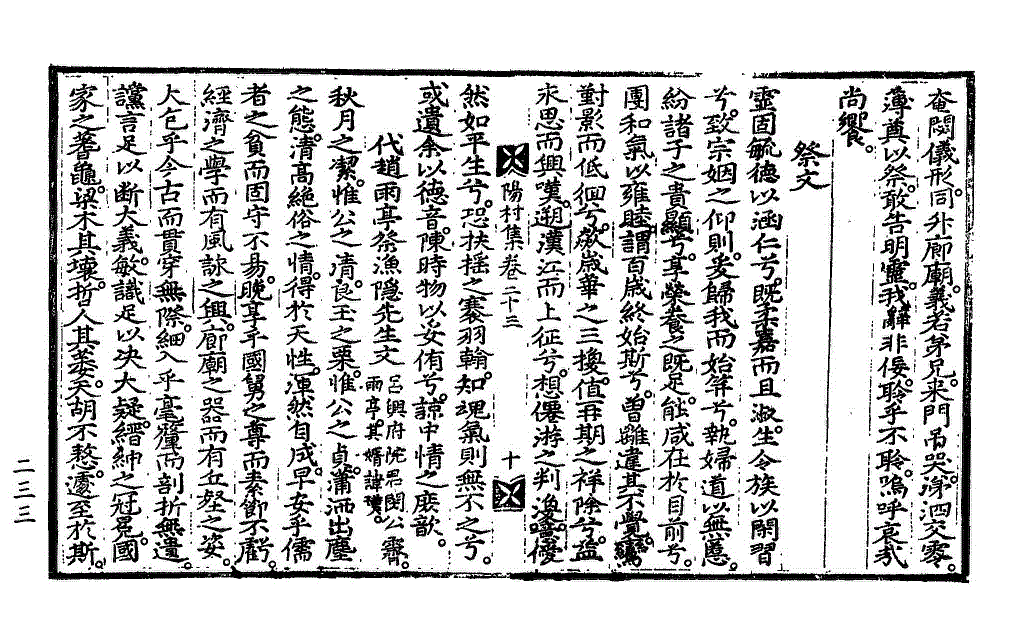 奄閟儀形同升廊廟義若弟兄來門吊哭涕泗交零
薄奠以祭敢告明靈我辭非佞聆乎不聆嗚呼哀哉
尚饗
祭文
靈固毓德以涵仁兮既柔嘉而且淑生令族以閑習
兮致宗姻之仰則爰歸我而始笄兮執婦道以無慝
紛諸子之貴顯兮享榮養之既足能咸在於目前兮
團和氣以雍睦謂百歲終始斯兮曾雖違其不覺
對影而低徊兮歲崒之三換値再期之祥除兮益
來思而興嘆遡漢江而上征兮想僊游之判渙噫優
然如平生兮恐扶搖之褰羽翰知魂氣則無不之兮
或遺余以德音陳時物以妥侑兮諒中情之庶歆
代趙雨亭祭漁隱先生文 呂興府院君閔公霽雨亭其婿諱璞
秋月之潔惟公之淸良玉之栗惟公之貞蕭洒出塵
之態淸高絶俗之情得於天性渾然自成早安乎儒
者之貧而固守不易晩享乎國舅之尊而素節不虧
經濟之學而有風詠之興廊廟之器而有丘壑之姿
大包乎今古而貫穿無際細入乎毫釐而剖折無遺
讜言足以断大義敏識足以决大疑縉紳之冠冕國
家之蓍龜梁木其壞哲人其萎天胡不憖遽至於斯
陽村集卷二十三
十
二三三